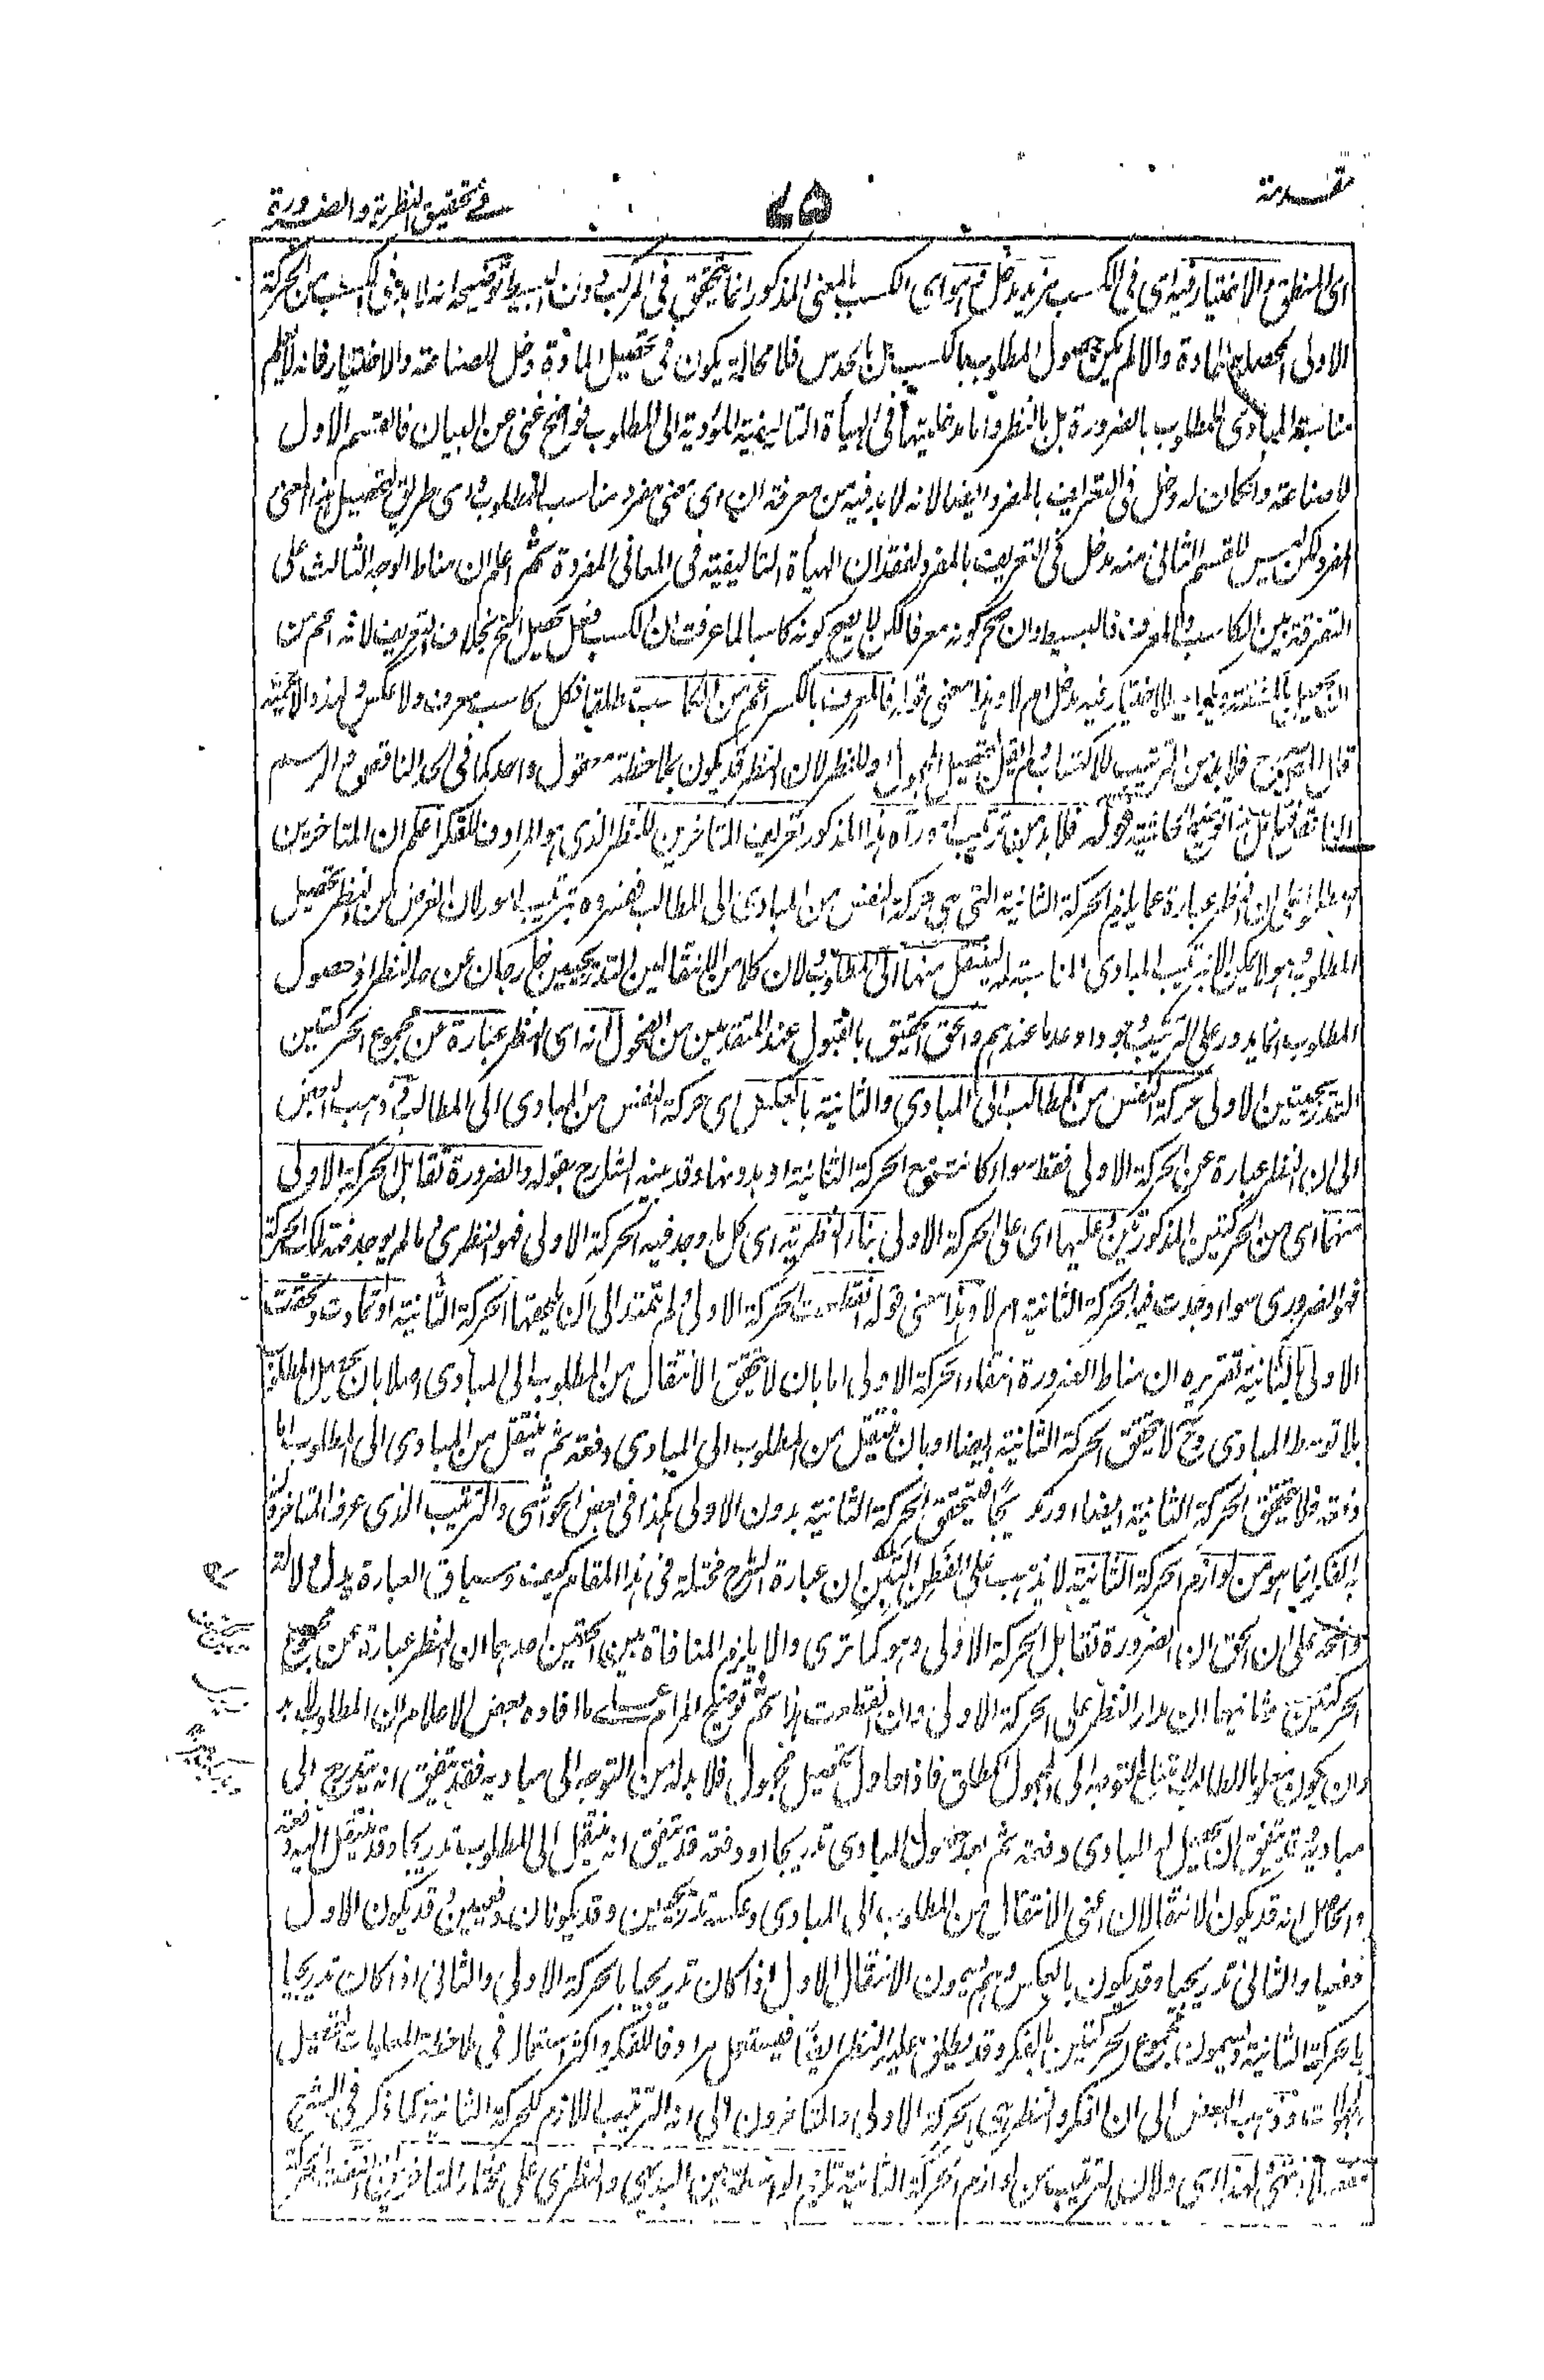 مقدمة
٧٥
فے تحقيق النظرية والضرورة
اى المنطق والاختيار فيه اى فى الكسب مزيد دخل وهو اى الكسب بالمعنى المذكور انما يتحقق فى المركب دون البسيط توضيحه انه لا بد فى الكسب من الحركة
الاولى لتحصيل المادة والا لم يكن حصول المطلوب بالكسب بل بالحدس فلا محالة يكون فى تحصيل المادة دخل للصناعة والاختيار فانه لا يعلم
مناسبة المبادى للمطلوب بالضرورة بل بالنظر واما مدخليتها فى الهيأة التاليفية المؤدية الى المطلوب فواضح غنى عن البيان فالقسم الاول
للصناعة وان كان له دخل فى التعريف بالمفرد ايضا لانه لا بد فيه من معرفة ان اى معنى مفرد مناسب للمطلوب واى طريق لتحصيل هذا المعنى
المفرد لكن ليس للقسم الثانى منه مدخل فى التعريف بالمفرد لفقدان الهيأة التاليفية فى المعانى المفردة ثم اعلم ان مناط الوجه الثالث على
التفرقة بين الكاسب والمعرف فالبسيط وان صح كونه معرفا لكن لا يصح كونه كاسبا لما عرفت ان الكسب فعل تحصيل الخ بخلاف التعريف لانه اعم من
للاختيار فيه دخل ام لا وهذا معنى قوله فالمعرف بالكسر اعم من الكاسب مطلقا فكل كاسب معرف ولا عكس ولهذه الاعمية
قال الشارح فلا بد من الترتيب للاكتساب ولم يقل لتحصيل المجهول او للنظر لان النظر قد يكون بملاحظة معقول واحد كما فى الحد الناقص والرسم
الناقص قوله فلا بد من ترتيب امور اه هذا المذكور تعريف المتاخرين للنظر الذى هو المرادف للفكر اعلم ان المتاخرين
ان النظر عبارة عما يلزم الحركة الثانية التى هى حركة النفس من المبادى الى المطالب ففسروه بترتيب امور لان الغرض من النظر تحصيل
المطلوب وهو لا يمكن الا بترتيب المبادى المناسبة له لينتقل منها الى المطلوب لان كلا من الانتقالين التدريجيين خارجان عن حد النظر اذ حصول
المطلوب انما يدور على الترتيب وجودا وعدما عندهم والحق الحقيق بالقبول عند المتقدمين من الفحول انه اى النظر عبارة عن مجموع الحركتين
التدريجيتين الاولى حركة النفس من المطالب الى المبادى والثانية بالعكس اى حركة النفس من المبادى الى المطالب وذهب البعض
الى ان النظر عبارة عن الحركة الاولى فقط سواء كانت مع الحركة الثانية او بدونها وقد بينه الشارح بقوله والضرورة تقابل الحركة الاولى
منهما اى من الحركتين المذكورتين وعليها اى على الحركة الاولى بناء النظرية اى كل ما وجد فيه الحركة الاولى فهو النظرى وما لم يوجد فيه تلك الحركة
فهو الضرورى سواء وجدت فيه الحركة الثانية ام لا وهذا معنى قوله انقطعت الحركة الاولى ولم تمتد الى ان تلحقها الحركة الثانية او تمادت ولحقت
الاولى الثانية تقريره ان مناط الضرورة انتفاء الحركة الاولى اما بان لا يتحقق الانتقال من المطلوب الى المبادى اصلا بان يحصل المطلوب
بلا توسط المبادى وح لا يتحقق الحركة الثانية ايضا او بان ينتقل من المطلوب الى المبادى دفعة ثم ينتقل من المبادى الى المطلوب اما
دفعة فلا يتحقق الحركة الثانية ايضا او تدريجا فيتحقق الحركة الثانية بدون الاولى كذا فى بعض الحواشى والترتيب الذى عرف المتاخرون
به الفكر انما هو من لوازم الحركة الثانية لا يذهب على الفطن اللبيب ان عبارة الشرح مختلة فى هذا المقام كيف وسياق العبارة يدل دلالة
واضحة على ان الحق ان الضرورة تقابل الحركة الاولى وهو كما ترى والا يلزم المنافاة بين الحقين احدهما ان النظر عبارة عن مجموع
الحركتين وثانيهما ان مدار النظر على الحركة الاولى وان انقطعت هذا ثم توضيح المرام على ما افاده بعض الاعلام ان المطلوب لا بد
وان يكون معلوما لامتناع التوجه الى المجهول المطلق فاذا حاول تحصيل مجهول فلا بد له من التوجه الى مباديه فقد يتفق انه يتدرج الى
مباديه وقد يتفق ان يحصل له المبادى دفعة ثم بعد حصول المبادى تدريجا او دفعة قد يتفق انه ينتقل الى المطلوب تدريجا وقد ينتقل اليه دفعة
والحاصل انه قد يكون الانتقالان اعنى الانتقال من المطلوب الى المبادى وعكسه تدريجيين وقد يكونان دفعيين وقد يكون الاول
دفعيا والثانى تدريجيا وقد يكون بالعكس وهم يسمون الانتقال الاول اذا كان تدريجيا بالحركة الاولى والثانى اذا كان تدريجيا
بالحركة الثانية ويسمون مجموع الحركتين بالفكر وقد يطلق عليه النظر ايضا فيستعمل مرادفا للفكر واكثر استعماله فى ملاحظة المعلومات لتحصيل
المجهولات وذهب البعض الى ان الفكر والنظر هى الحركة الاولى والمتاخرون الى انه الترتيب اللازم للحركة الثانية كما ذكر فى الشرح
انتهى ولان الترتيب من لوازم الحركة الثانية تلزم الواسطة بين البديهى والنظرى على مختار المتاخرين